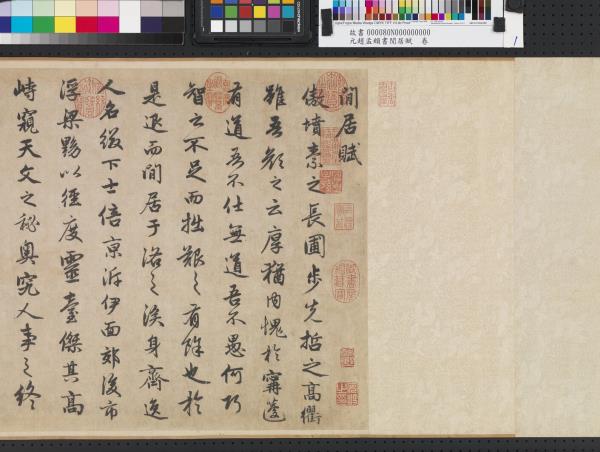 故書 000080N000000000
元趙孟頫書閒居賦 卷
閒居賦
傲墳素之長圃步先哲之高衢
雖吾顏之云厚猶內愧於甯蘧
有道吾不仕無道吾不愚何巧
智之不足而拙艱之有餘也於
是退而閒居于洛之涘身齊逸
人名綴下士倍京泝伊面郊後市
浮梁黝以徑度靈臺傑其高
峙窺天文之秘奧究人事之終